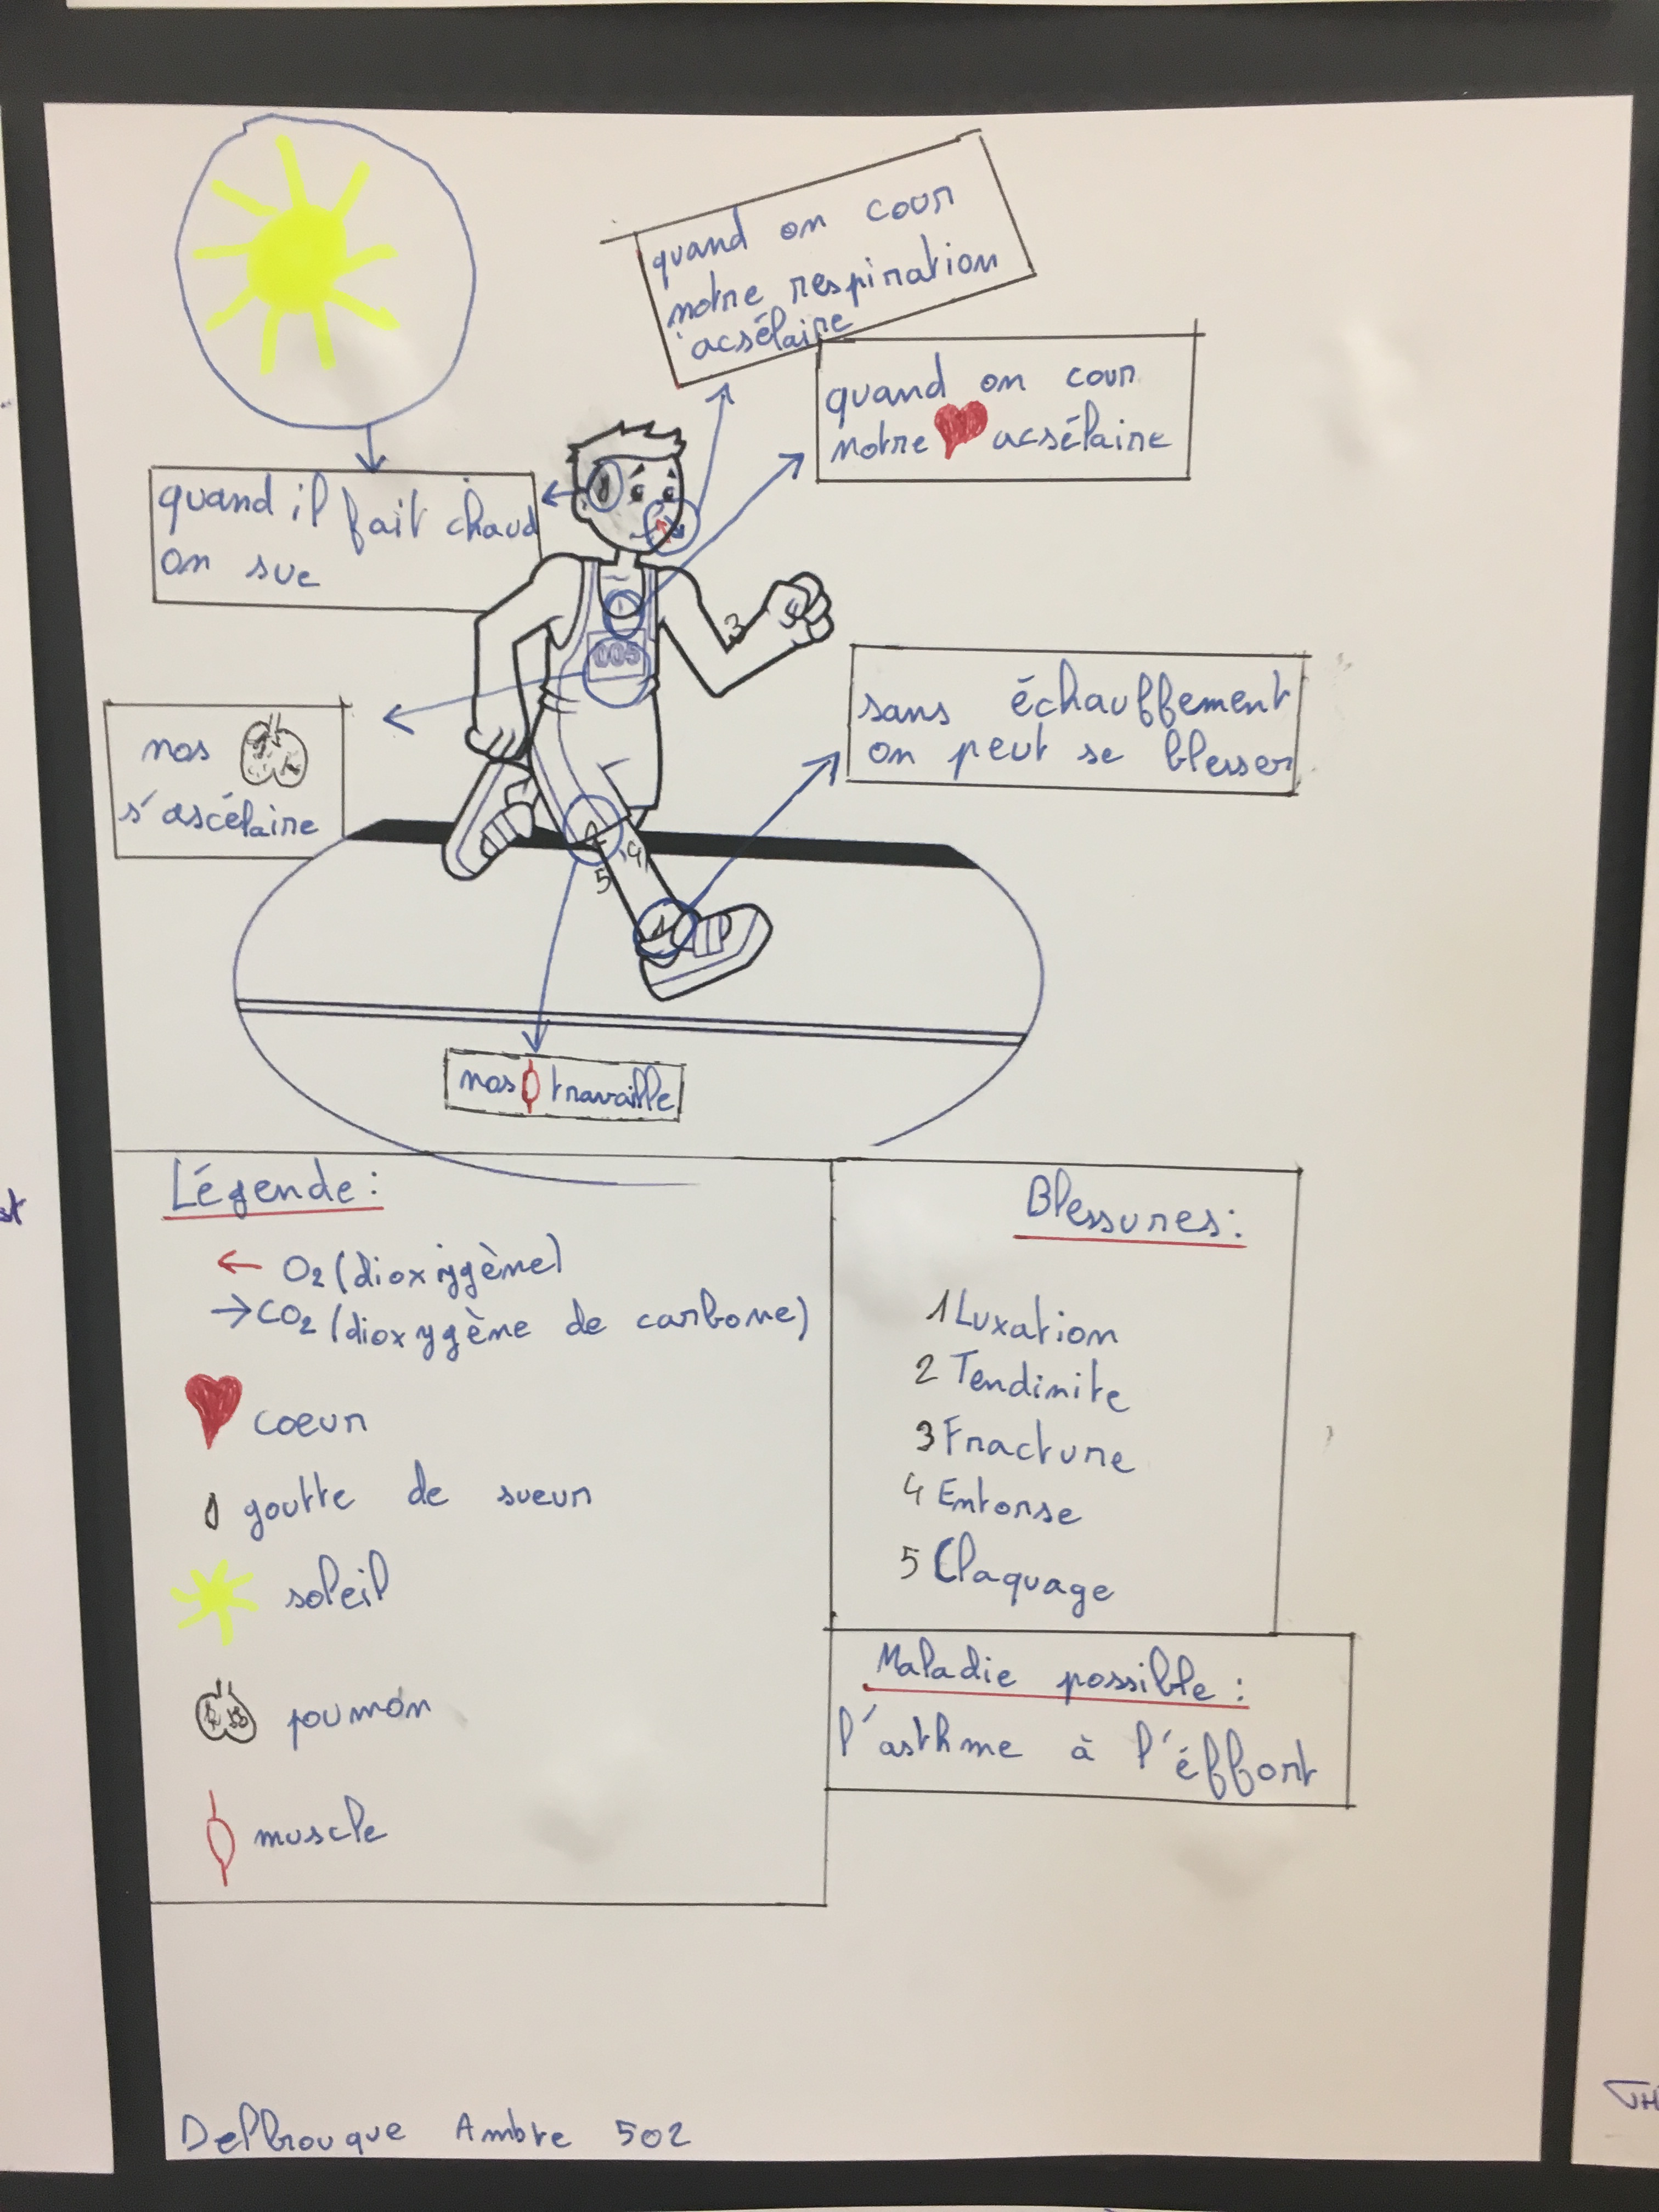 quand on cour
notre respiration
acsélaire
quand on cour
notre acsélaire
quand il fait chaud
on sue
005
3
sans échauffement
on peut se blesser
nos
s'ascélaire
4
5
nos travaille
Légende:
O2 (dioxygène)
CO2 (dioxygène de carbone)
coeur
goutte de sueur
soleil
poumon
muscle
Blessures:
1 Luxation
2 Tendinite
3 Fracture
4 Entorse
5 Claquage
Maladie possible:
l'asthme à l'éffort
Delbrouque Ambre 502